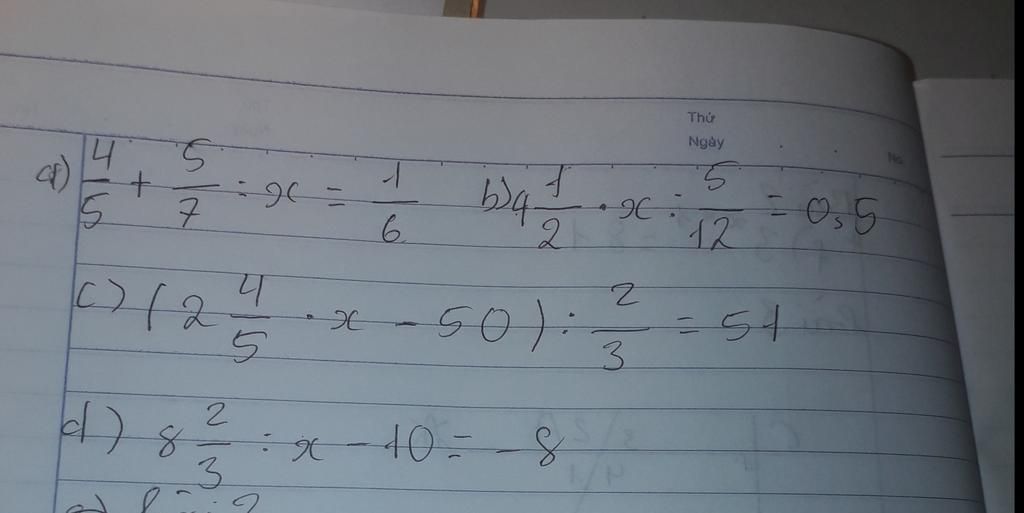 Thứ
Ngày
No
a) 4/5 + 5/7 : x = 1/6 b) 4 1/2 . x : 5/12 = 0,5
c) (2 4/5 . x - 50) : 2/3 = 51
d) 8 2/3 : x - 10 = -8